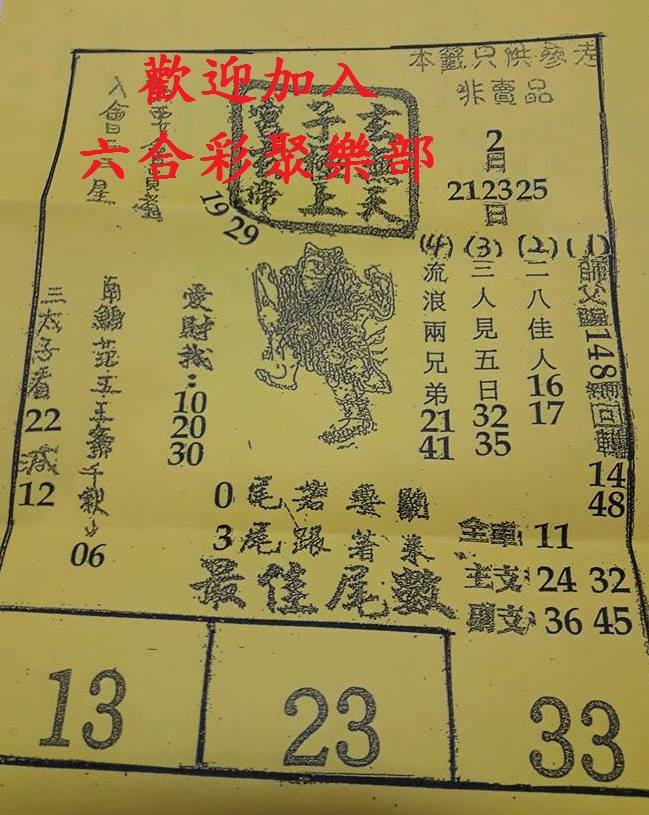 本籤只供參考
非賣品
歡迎加入
六合彩聚樂部
2日
21 23 25日
19 29
(1)
師父 148 回轉
14
48
(2)
二八佳人
16
17
(3)
三人見五日
32
35
(4)
流浪兩兄弟
21
41
愛財我：
10
20
30
南鯤
千秋
06
三太子看
22
減
12
0尾若要
3尾跟著來
最佳尾數
全車 11
主支 24 32
副支 36 45
13 23 33